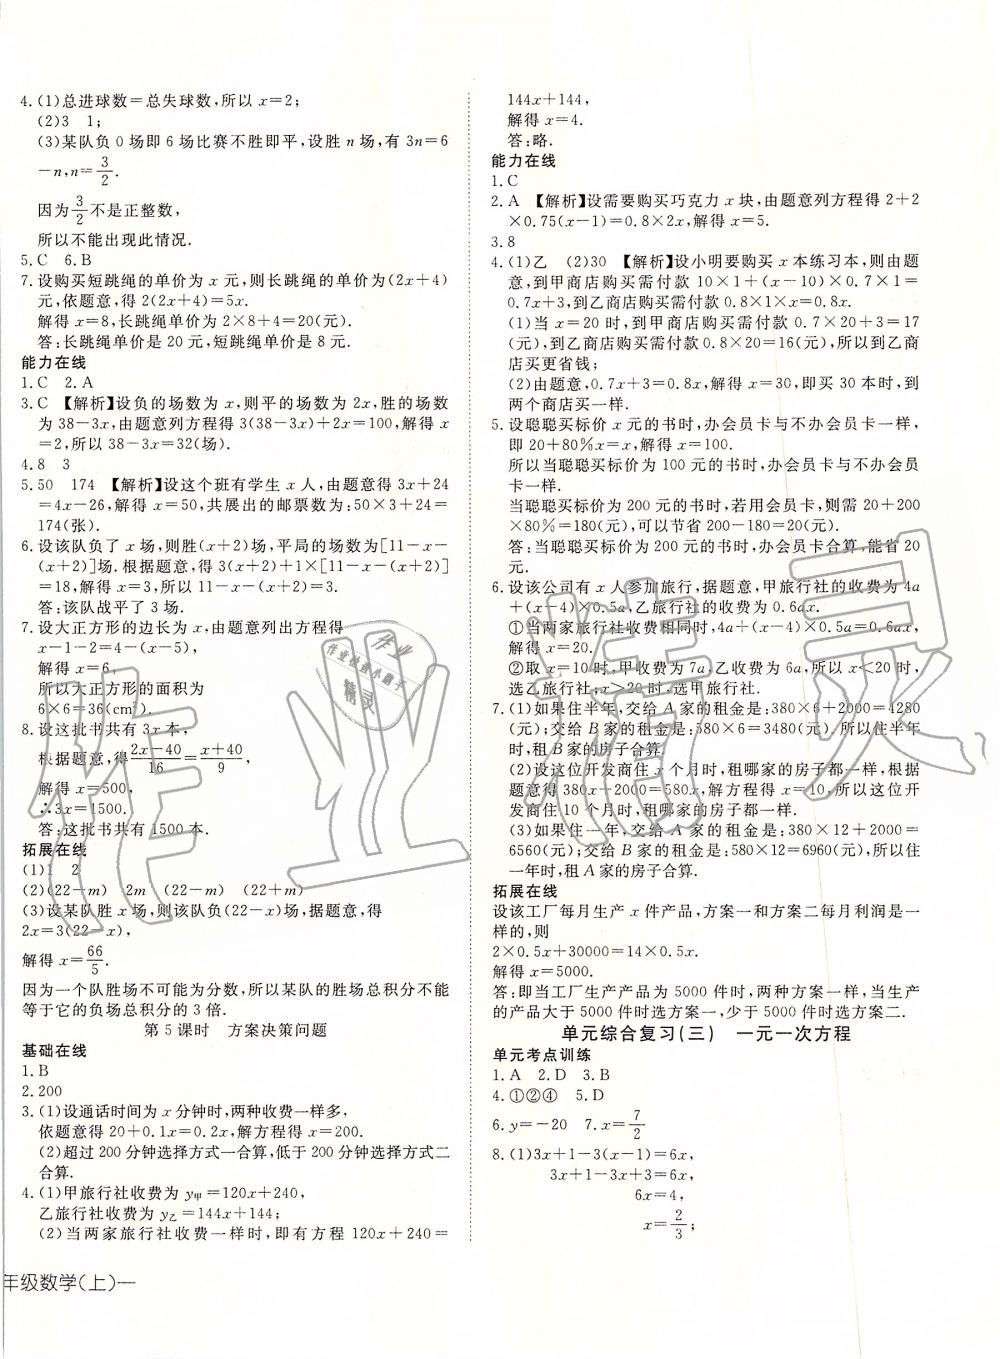 4.(1)总进球数=总失球数,所以 x=2;
(2)3　1;
(3)某队负 0 场即 6 场比赛不胜即平,设胜 n 场,有 3n=6
-n,n=3/2.
因为3/2不是正整数,
所以不能出现此情况.
5.C　6.B
7.设购买短跳绳的单价为 x 元,则长跳绳的单价为(2x+4)
元,依题意,得 2(2x+4)=5x.
解得 x=8,长跳绳单价为 2×8+4=20(元).
答:长跳绳单价是 20 元,短跳绳单价是 8 元.
能力在线
1.C　2.A
3.C　【解析】设负的场数为 x,则平的场数为 2x,胜的场数
为 38-3x,由题意列方程得 3(38-3x)+2x=100,解得 x
=2,所以 38-3x=32(场).
4.8　3
5.50　174　【解析】设这个班有学生 x 人,由题意得 3x+24
=4x-26,解得 x=50,共展出的邮票数为:50×3+24=
174(张).
6.设该队负了 x 场,则胜(x+2)场,平局的场数为[11-x-
(x+2)]场.根据题意,得 3(x+2)+1×[11-x-(x+2)]
=18,解得 x=3,所以 11-x-(x+2)=3.
答:该队战平了 3 场.
7.设大正方形的边长为 x,由题意列出方程得
x-1-2=4-(x-5),
解得 x=6,
所以大正方形的面积为
6×6=36(cm²).
8.设这批书共有 3x 本,
根据题意,得(2x-40)/16=(x+40)/9,
解得 x=500,
∴3x=1500.
答:这批书共有 1500 本.
拓展在线
(1)1　2
(2)(22-m)　2m　(22-m)　(22-m)
(3)设某队胜 x 场,则该队负(22-x)场,据题意,得
2x=3(22-x),
解得 x=66/5.
因为一个队胜场不可能为分数,所以某队的胜场总积分不能
等于它的负场总积分的 3 倍.
第 5 课时　方案决策问题
基础在线
1.B
2.200
3.(1)设通话时间为 x 分钟时,两种收费一样多,
依题意得 20+0.1x=0.2x,解方程得 x=200.
(2)超过 200 分钟选择方式一合算,低于 200 分钟选择方式二
合算.
4.(1)甲旅行社收费为 y甲=120x+240,
乙旅行社收费为 y乙=144x+144;
(2)当两家旅行社收费一样时,即有方程 120x+240=
年级数学(上)一
144x+144,
解得 x=4.
答:略.
能力在线
1.C
2.A　【解析】设需要购买巧克力 x 块,由题意列方程得 2+2
×0.75(x-1)=0.8×2x,解得 x=5.
3.8
4.(1)乙　(2)30　【解析】设小明要购买 x 本练习本,则由题
意,到甲商店购买需付款 10×1+(x-10)×0.7×1=
0.7x+3,到乙商店购买需付款 0.8×1×x=0.8x.
(1)当 x=20 时,到甲商店购买需付款 0.7×20+3=17
(元),到乙商店购买需付款 0.8×20=16(元),所以到乙商
店买更省钱;
(2)由题意,0.7x+3=0.8x,解得 x=30,即买 30 本时,到
两个商店买一样.
5.设聪聪买标价 x 元的书时,办会员卡与不办会员卡一样,
即 20+80%x=x,解得 x=100.
所以当聪聪买标价为 100 元的书时,办会员卡与不办会员
卡一样.
当聪聪买标价为 200 元的书时,若用会员卡,则需 20+200
×80%=180(元),可以节省 200-180=20(元).
答:当聪聪买标价为 200 元的书时,办会员卡合算,能省 20
元.
6.设该公司有 x 人参加旅行,据题意,甲旅行社的收费为 4a
+(x-4)×0.5a,乙旅行社的收费为 0.6ax.
①当两家旅行社收费相同时,4a+(x-4)×0.5a=0.6ax,
解得 x=20.
②取 x=10 时,甲收费为 7a,乙收费为 6a,所以 x<20 时,
选乙旅行社;x>20 时,选甲旅行社.
7.(1)如果住半年,交给 A 家的租金是:380×6+2000=4280
(元);交给 B 家的租金是:580×6=3480(元).所以住半年
时,租 B 家的房子合算.
(2)设这位开发商住 x 个月时,租哪家的房子都一样,根据
题意得 380x+2000=580x,解方程得 x=10,所以这位开
发商住 10 个月时,租哪家的房子都一样.
(3)如果住一年,交给 A 家的租金是:380×12+2000=
6560(元);交给 B 家的租金是:580×12=6960(元),所以住
一年时,租 A 家的房子合算.
拓展在线
设该工厂每月生产 x 件产品,方案一和方案二每月利润是一
样的,则
2×0.5x+30000=14×0.5x.
解得 x=5000.
答:即当工厂生产产品为 5000 件时,两种方案一样,当生产
的产品大于 5000 件时选方案一,少于 5000 件时选方案二.
单元综合复习(三)　一元一次方程
单元考点训练
1.A　2.D　3.B
4.①②④　5.D
6.y=-20　7.x=7/2
8.(1)3x+1-3(x-1)=6x,
3x+1-3x+3=6x,
6x=4,
x=2/3;
作业精灵